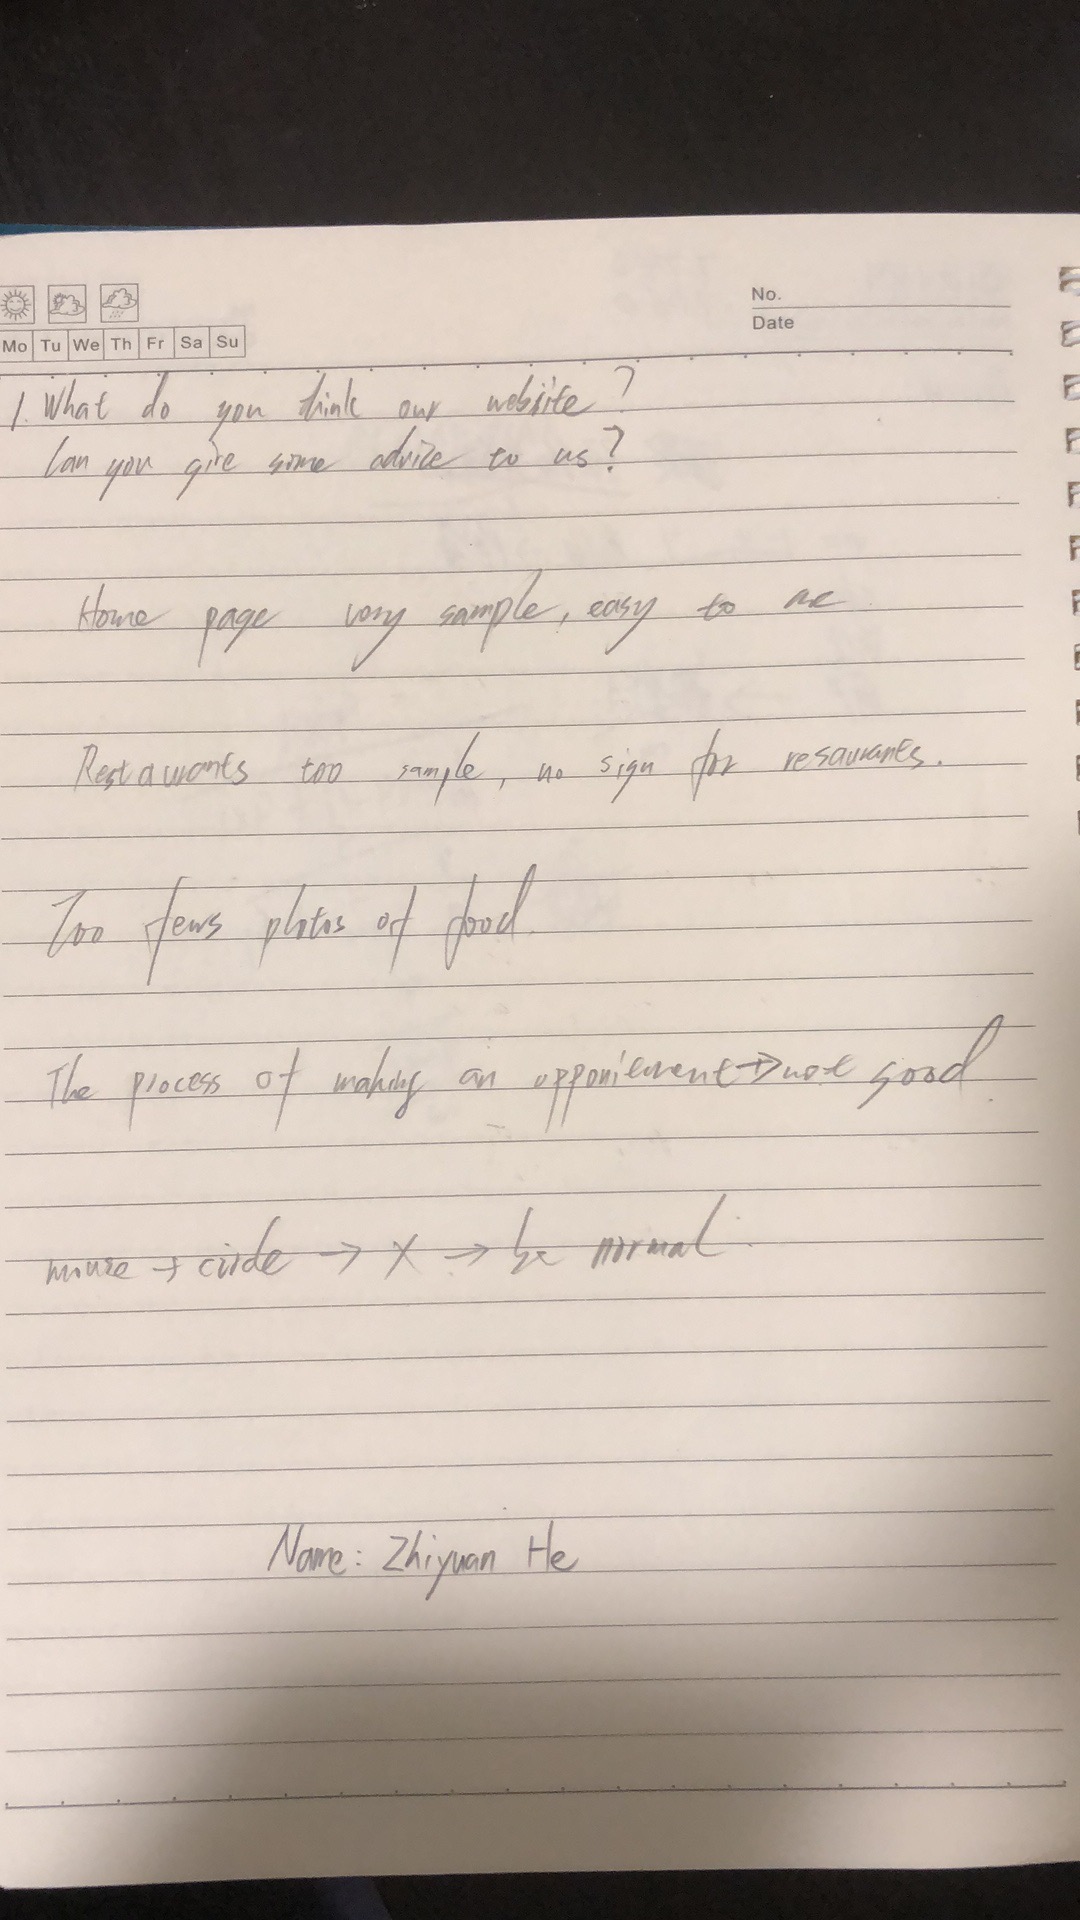 No.
Date
Mo Tu We Th Fr Sa Su
1. What do you think our website?
Can you give some advice to us?
Home page very sample, easy to
Restaurants too sample, no sign for resaurants.
Too fews photos of food.
The process of making an → not good.
mouse → circle → X → be normal.
Name: Zhiyuan He